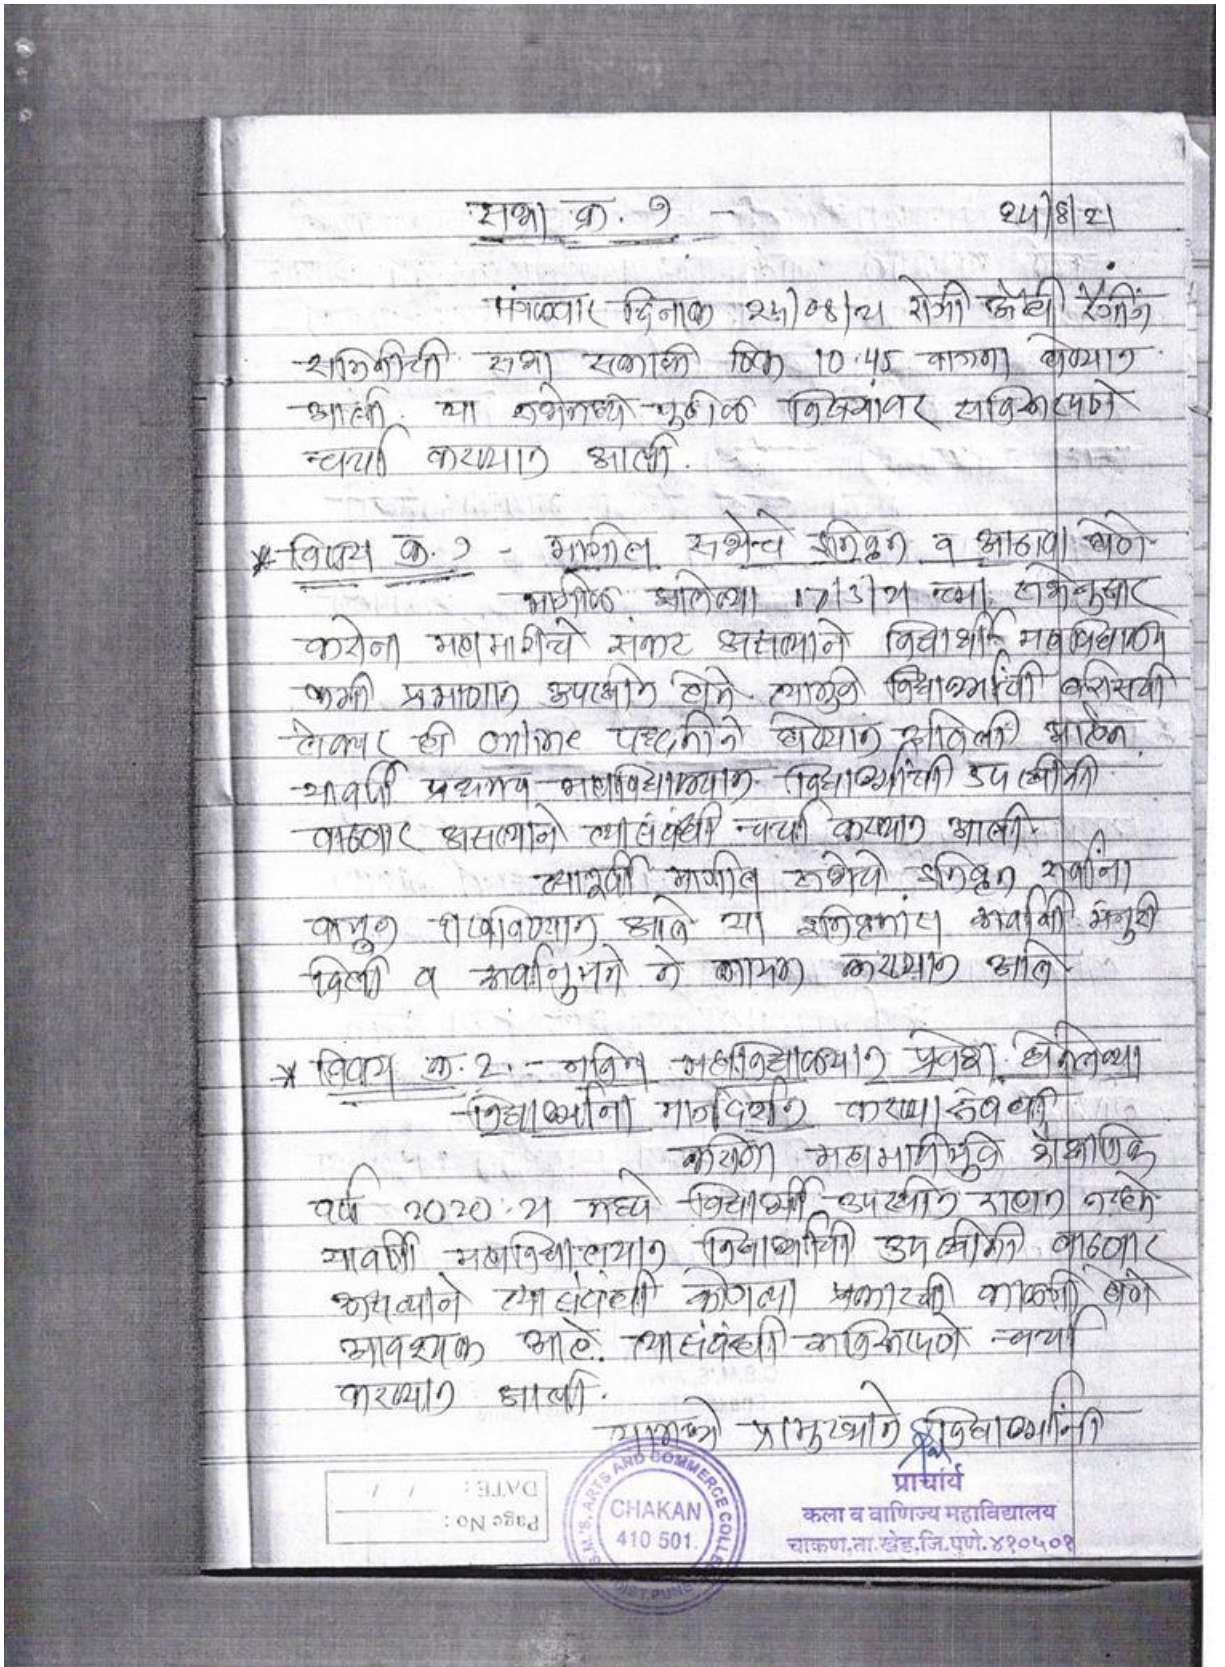 सभा क्र. १ -
मंगळवार दिनांक रोजी अँटी रॅगींग
समितीची सभा सकाळी ठिक 10.45 वाजता घेण्यात
आली. या सभेमध्ये पुढील विषयांवर सविस्तरपणे
चर्चा करण्यात आली.
* विषय क्र. १ - मागील सभेचे इतिवृत्त व आढावा घेणे
मागील झालेल्या 17/3/21 च्या सभेनुसार
करोना महामारीचे संकट असल्याने विद्यार्थी महाविद्यालय
कमी प्रमाणात उपस्थीत होते त्यामुळे विद्यार्थ्यांची बरीसची
लेक्चर ही पद्धतीने घेण्यात आलेली आहेत
यावर्षी प्रथमच महाविद्यालयात विद्यार्थ्यांची उपस्थीती
वाढणार असल्याने त्यासंबंधी चर्चा करण्यात आली.
त्यापूर्वी मागील सभेचे इतिवृत्त सर्वांना
वाचून दाखविण्यात आले या इतिवृत्तांस सर्वांनी मंजुरी
दिली व सर्वानुमते ते कायम करण्यात आले
* विषय क्र. 2. - नविन महाविद्यालयात प्रवेश घेतलेल्या
विद्यार्थ्यांना मार्गदर्शन करण्यासंबंधी
करोना महामारीमुळे शैक्षणिक
वर्ष 2020-21 मध्ये विद्यार्थी उपस्थीत राहात नव्हते
यावर्षी महाविद्यालयात विद्यार्थ्यांची उपस्थीती वाढणार
असल्याने त्यासंबंधी कोणत्या प्रकारची काळजी घेणे
आवश्यक आहे. त्यासंबंधी सविस्तरपणे चर्चा
करण्यात आली.
यामध्ये प्रामुख्याने विद्यार्थ्यांनी
प्राचार्य
कला व वाणिज्य महाविद्यालय
चाकण,ता.खेड,जि.पुणे.४१०५०१
S.M.'S. ARTS AND COMMERCE COLLEGE
CHAKAN
410 501.
DIST.PUNE
Page No :
DATE : / /